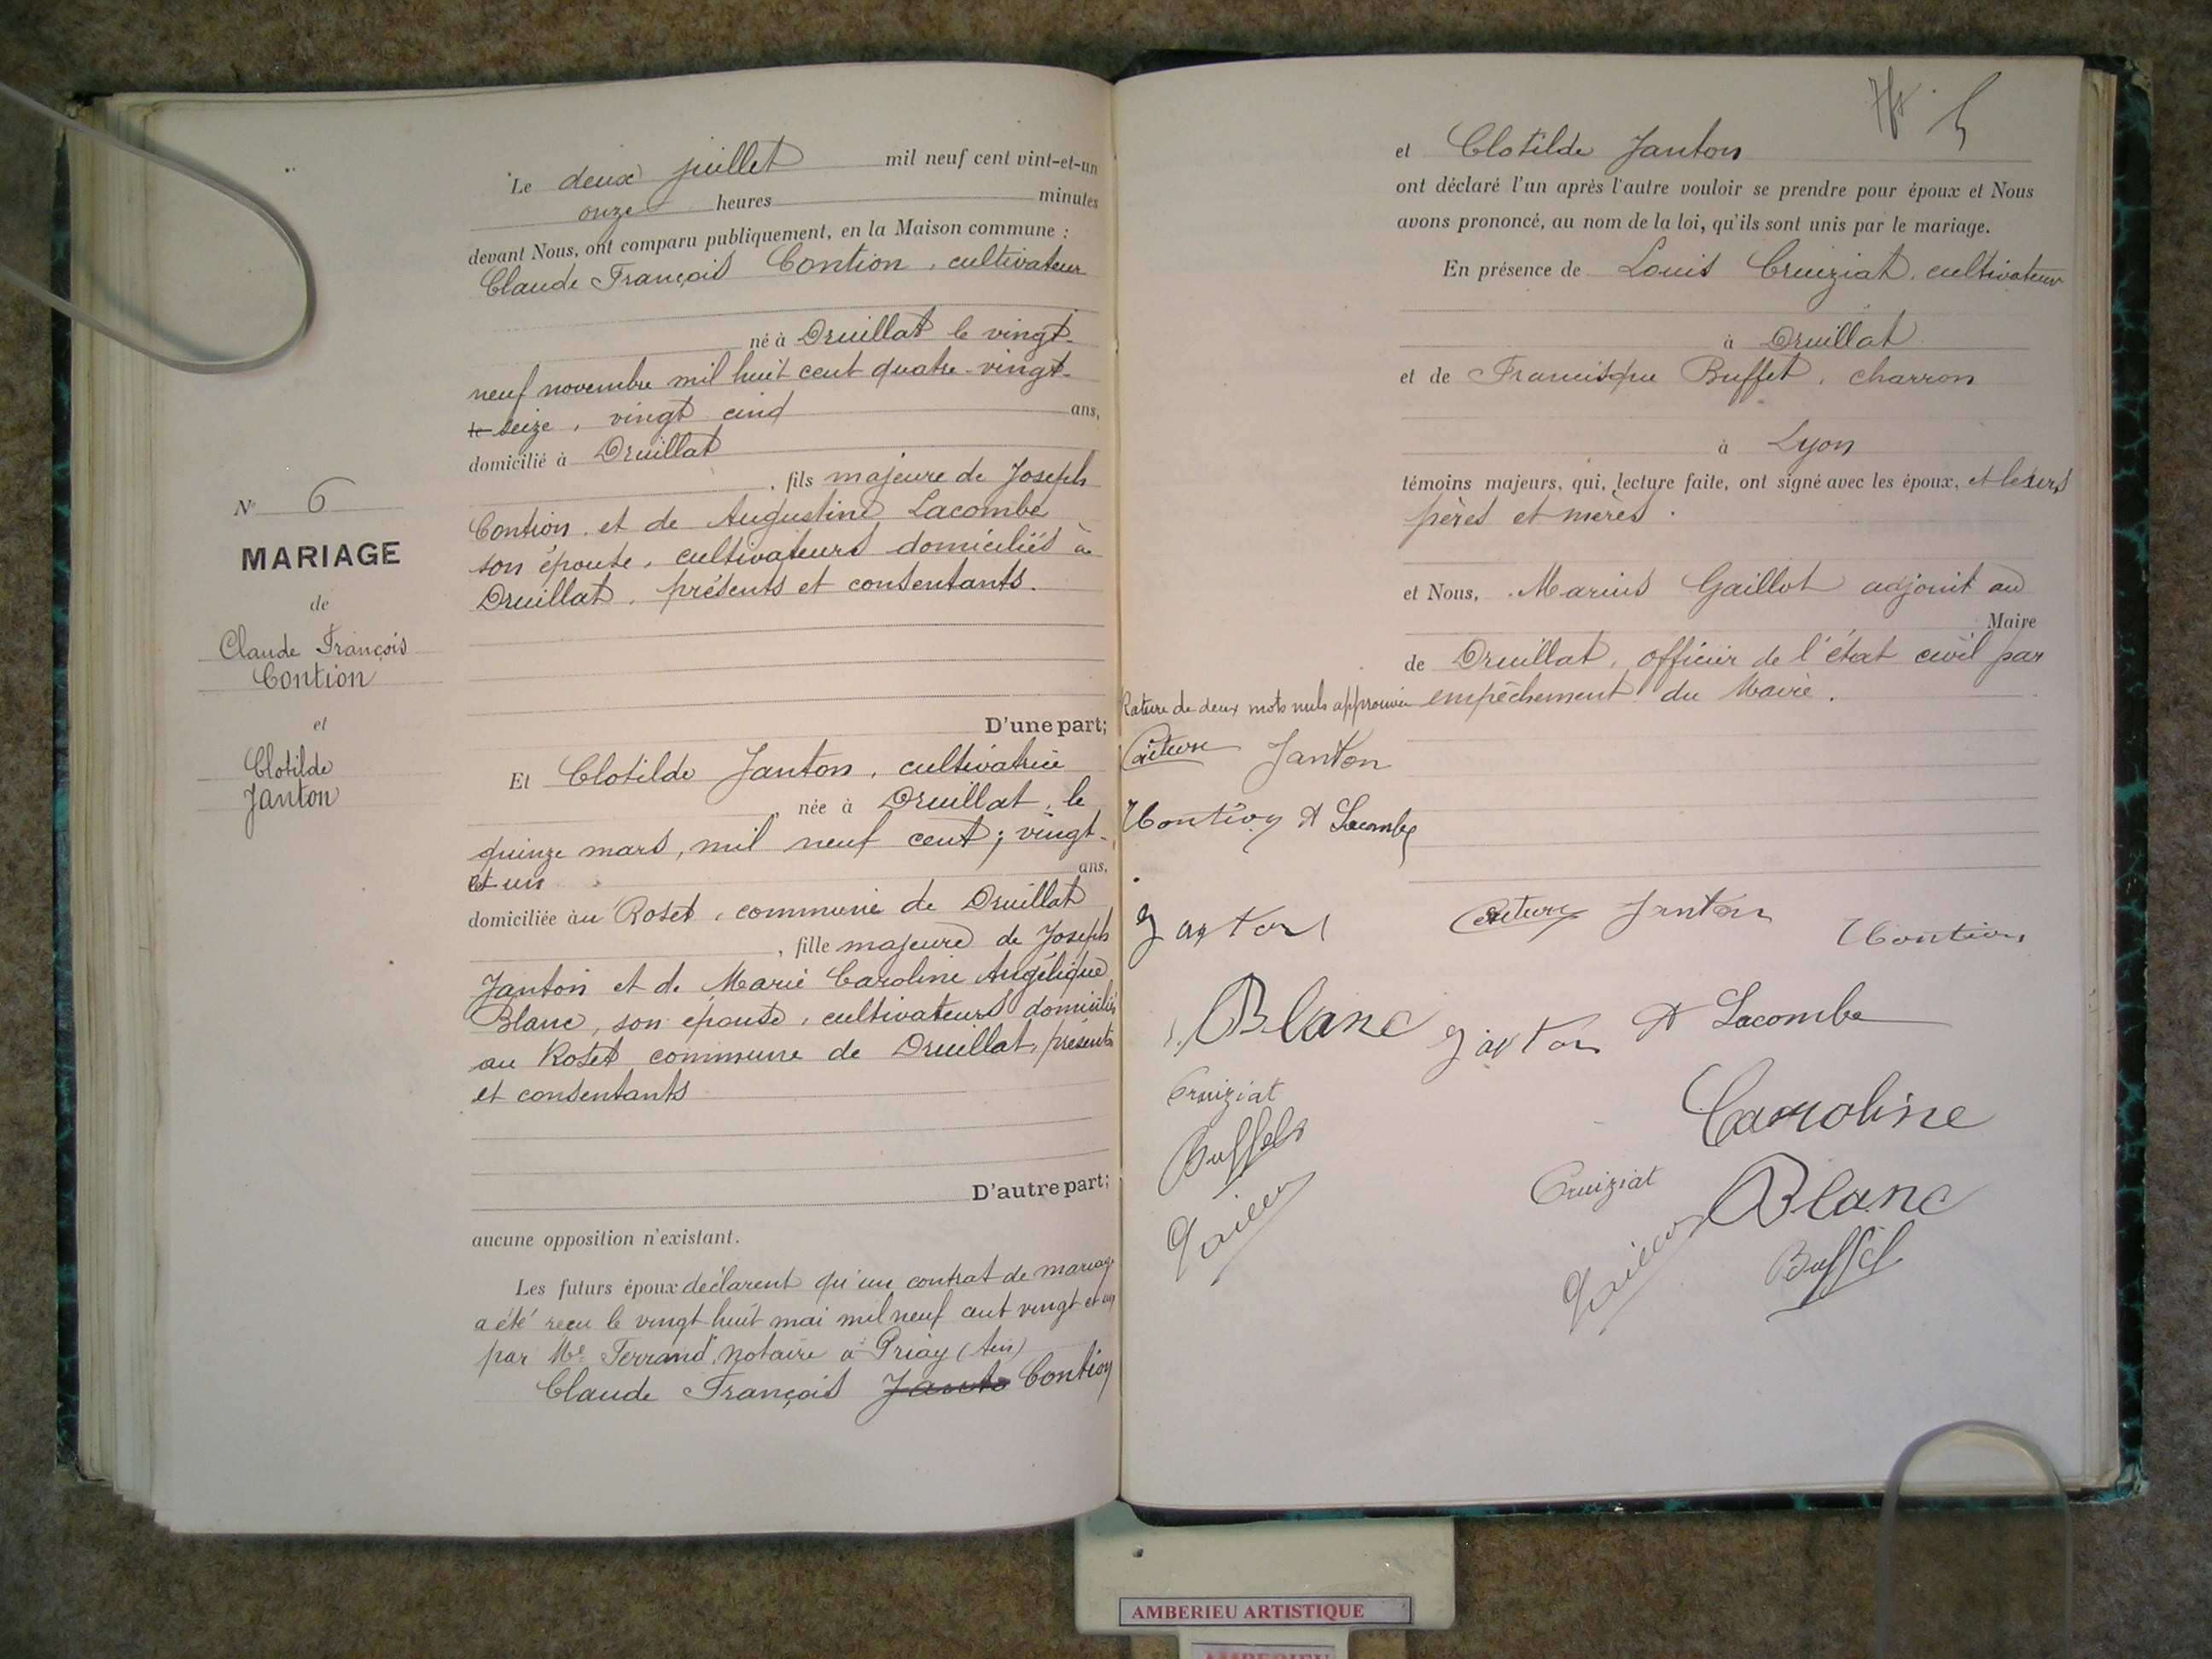 Le deux juillet mil neuf cent vint-et-un
onze heures minutes
devant Nous, ont comparu publiquement, en la Maison commune :
Claude François Contion, cultivateur
né à Druillat le vingt-
neuf novembre mil huit cent quatre-vingt-
seize, vingt cinq ans,
domicilié à Druillat
, fils majeure de Joseph
Contion et de Augustine Lacombe
son épouse, cultivateurs domiciliés à
Druillat, présents et consentants.
D'une part;
N° 6
MARIAGE
de
Claude François
Contion
et
Clotilde
Janton
Et Clotilde Janton, cultivatrice
, née à Druillat, le
quinze mars, mil neuf cent; vingt-
et un ans,
domiciliée au Roset, commune de Druillat
, fille majeure de Joseph
Janton et de Marie Caroline Angélique
Blanc, son épouse, cultivateurs domiciliés
au Roset commune de Druillat, présents
et consentants
D'autre part;
aucune opposition n'existant.
Les futurs époux déclarent qu'un contrat de mariage
a été reçu le vingt huit mai mil neuf cent vingt et un
par Me Ferrand, notaire à Priay (Ain)
Claude François Janto Contion
et Clotilde Janton
ont déclaré l'un après l'autre vouloir se prendre pour époux et Nous
avons prononcé, au nom de la loi, qu'ils sont unis par le mariage.
En présence de Louis Cruiziat, cultivateur
à Druillat
et de Francisque Buffet, charron
à Lyon
témoins majeurs, qui, lecture faite, ont signé avec les époux, et leurs
pères et mères.
et Nous, Marius Gaillot adjoint au
Maire
de Druillat, officier de l'état civil par
empêchement du Maire.
Rature de deux mots nuls approuvée
Janton
Contion A Lacombe
Janton
Janton
Contion
Blanc
Janton
A Lacombe
Cruiziat
Caroline
Buffet
Cruiziat
Blanc
Buffet
AMBERIEU ARTISTIQUE
AMBERIEU